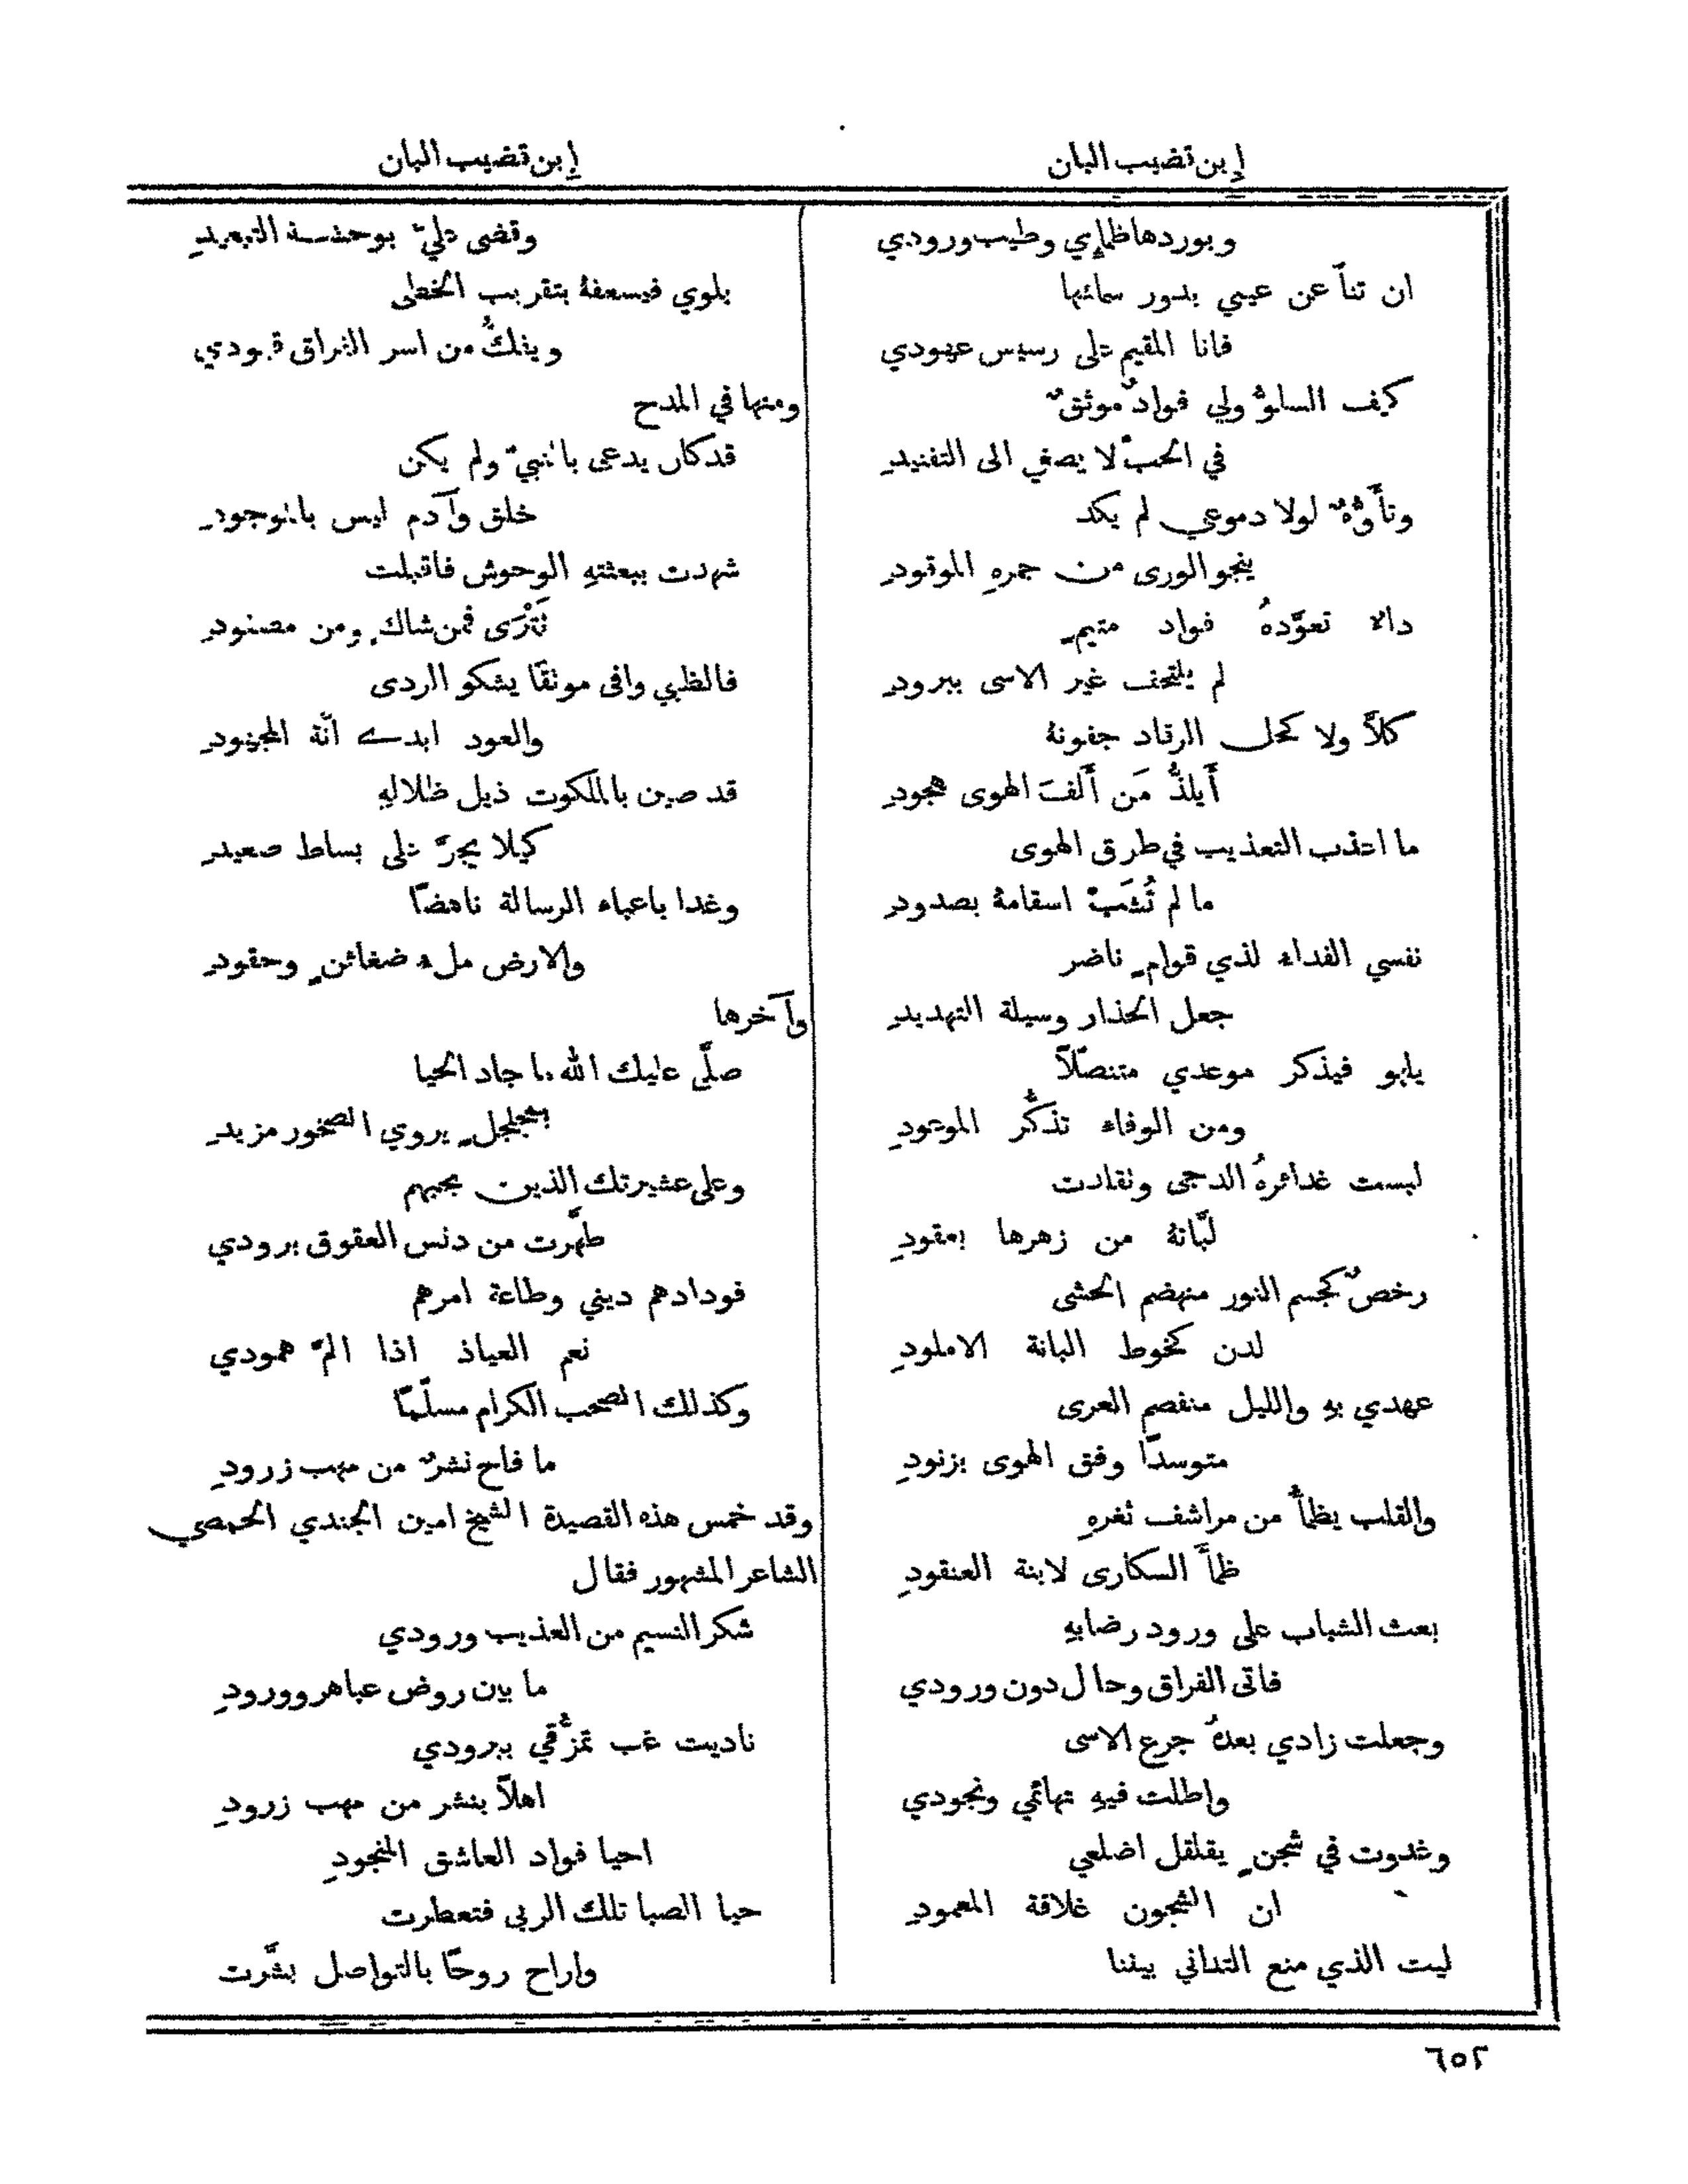 إبن قضيب البان
إبن قضيب البان
وبوردها ظمإي وطيب ورودي
ان تنأ عن عيني بدور سمائها
فانا المقيم على رسيس عهودي
كيف السلوّ ولي فواد موثقٌ
في الحبّ لا يصغي الى التفنيدِ
وتأوّهٌ لولا دموعي لم يكد
ينجو الورى من جمرهِ الموقودِ
دالا تعوَّدهُ فواد متيمٍ
لم يلتحف غير الاسى ببرودِ
كلاَّ ولا كحل الرقاد جفونهُ
أَيلذُّ مَن أَلفَ الهوى هجودِ
ما اعذب التعذيب في طرق الهوى
ما لم تُشَبْ اسقامهُ بصدودِ
نفسي الفداء لذي قوامٍ ناضر
جعل الحذار وسيلة التهديدِ
يلهو فيذكر موعدي متنصّلاً
ومن الوفاء تذكُّر الموعودِ
لبست غدائرهُ الدجى وتقلدت
لبَّاتهُ من زهرها بعقودِ
رخصٌ كجسم النور منهضم الحشى
لدن كخوط البانة الاملودِ
عهدي بهِ والليل منفصم العرى
متوسدًا وفق الهوى بزنودِ
والقلب يظمأُ من مراشف ثغرهِ
ظمأَ السكارى لابنة العنقودِ
بعث الشباب على ورود رضابهِ
فاتى الفراق وحال دون ورودي
وجعلت زادي بعدهُ جرع الاسى
واطلت فيهِ تهائمي ونجودي
وغدوت في شجنٍ يقلقل اضلعي
ان الشجون علاقة المعمودِ
ليت الذي منع التداني بيننا
وقضى عليّ بوحشة التبعيدِ
يلوي فيسعفهُ بتقريب الخطى
ويفكُّ من اسر الفراق قيودي
ومنها في المدح
قد كان يدعى بالنبيّ ولم يكن
خلق وآدم ليس بالموجودِ
شهدت ببعثتهِ الوحوش فاقبلت
تَتْرَى فمن شاكٍ ومن مصفودِ
فالظبي وافى موثقًا يشكو الردى
والعود ابدى انّة المجهودِ
قد صين بالملكوت ذيل ظلالهِ
كيلا يجرّ على بساط صعيدِ
وغدا باعباء الرسالة ناهضًا
والارض ملء ضغائنٍ وحقودِ
وآخرها
صلَّى عليك الله ما جاد الحيا
بمجلجلٍ يروي الصخور مزيدِ
وعلى عشيرتك الذين بحبهم
طهَّرت من دنس العقوق برودي
فودادهم ديني وطاعة امرهم
نعم العياذ اذا المّ همودي
وكذلك الصحب الكرام مسلّمًا
ما فاح نشرٌ من مهب زرودِ
وقد خمس هذه القصيدة الشيخ امين الجندي الحمصي
الشاعر المشهور فقال
شكر النسيم من العذيب ورودي
ما بين روض عباهر وورودِ
ناديت غب تمزُّقي ببرودي
اهلاً بنشر من مهب زرودِ
احيا فواد العاشق المنجودِ
حيا الصبا تلك الربى فتعطرت
واراح روحًا بالتواصل بشَّرت
٦٥٢